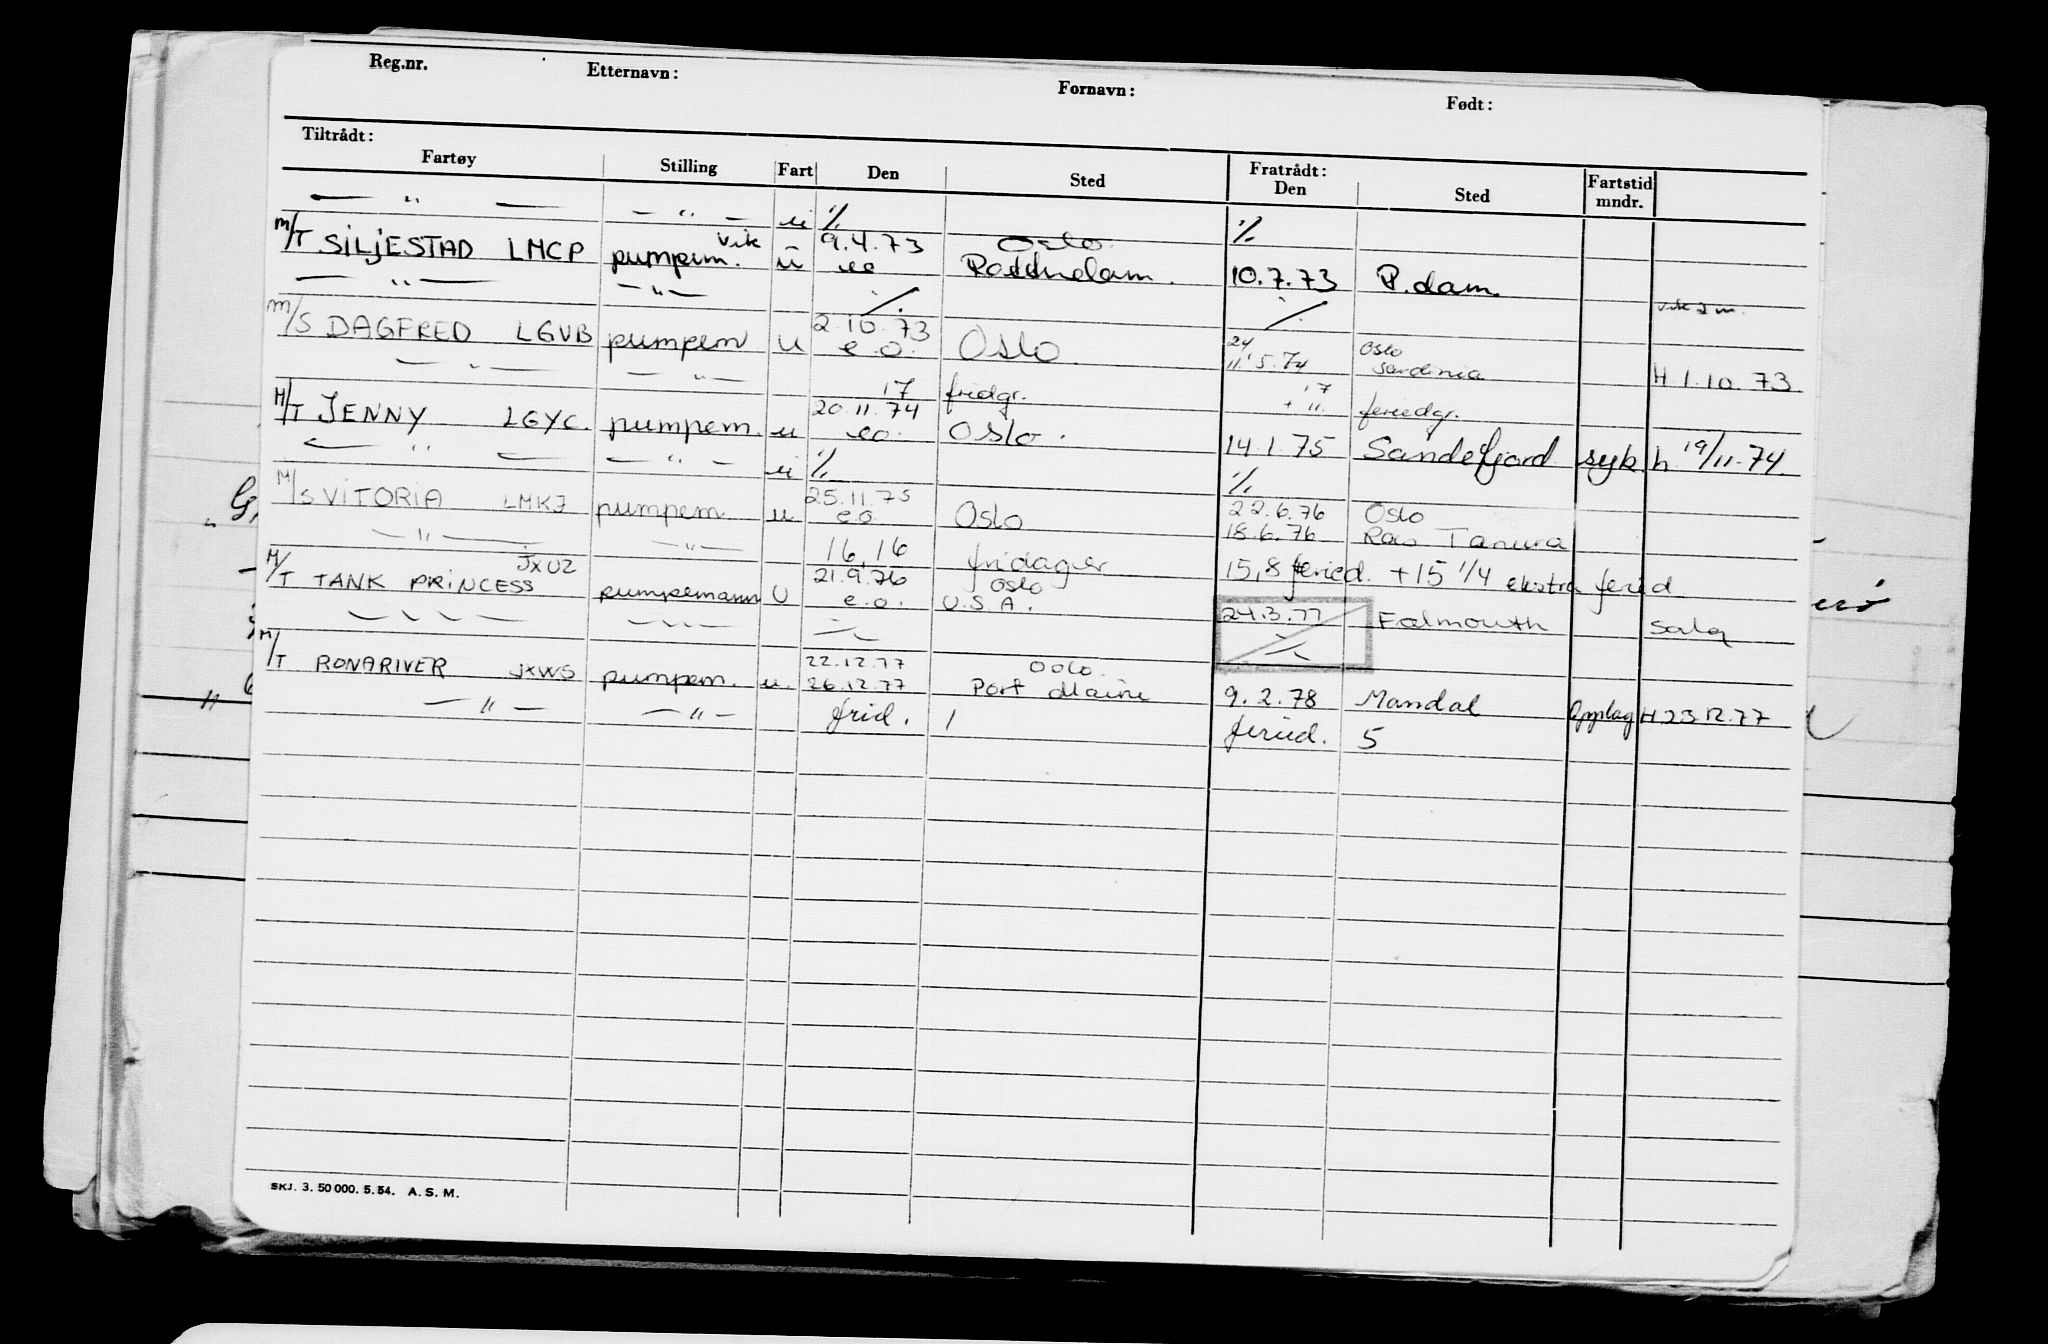 Reg.nr. Etternavn: Fornavn: Født:
Tiltrådt: Fratrådt:
Fartøy Stilling Fart Den Sted Den Sted Fartstid mndr.
— " — — " — u ·/. ·/.
M/T SILJESTAD LMCP pumpem. vik u 9.4.73 Oslo
eo Rotterdam. 10.7.73 R.dam.
— " — — " — ·/. ·/. vik 2 m.
M/S DAGFRED LGVB pumpem u 2.10.73 e.o. Oslo 24 11.5.74 Oslo Sardinia H 1.10.73
— " — — " — 17 fridgr. 17 + 11. feriedgr.
M/T JENNY LGYC. pumpem. u 20.11.74 eo. Oslo. 14.1.75 Sandefjord syk h 19/11.74.
— " — — " — u ·/. ·/.
M/S VITORIA LMKJ pumpem. u 25.11.75 e.o. Oslo 22.6.76 Oslo
18.6.76 Ras Tanura
— " — — " — 16,16 fridager 15,8 feried. +15 1/4 ekstra feried
M/T TANK PRINCESS JXUZ pumpemann U 21.9.76 Oslo
e.o. U.S.A. 24.3.77 Falmouth salg
— " — — " — ·/. ·/.
M/T RONARIVER JXWS pumpem. u. 22.12.77 Oslo.
26.12.77 Port Maine 9.2.78 Mandal Opplag H 23.12.77
— " — — " — frid. 1 feried. 5
SKJ. 3. 50 000. 5. 54. A. S. M.